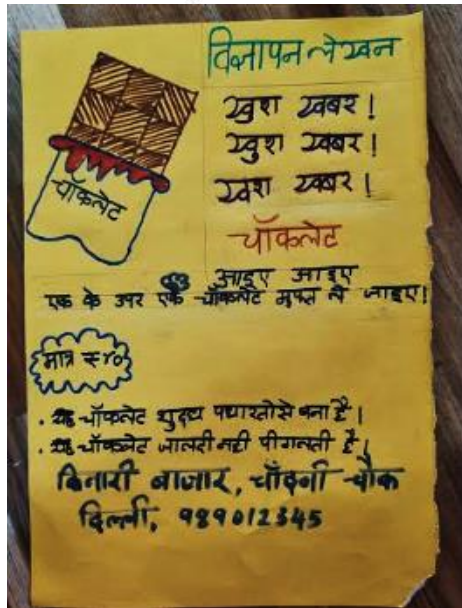 विज्ञापन लेखन
खुश खबर!
खुश खबर!
खुश खबर!
चॉकलेट
चॉकलेट
आइए आइए
एक के उपर एक चॉकलेट मुफ्त ले जाइए!
मात्र ₹४०
• यह चॉकलेट शुद्ध पधारतोसे बना है।
• यह चॉकलेट जालदी नही पीगलती है।
किनारी बाजार, चाँदनी चौक
दिल्ली, 989012345